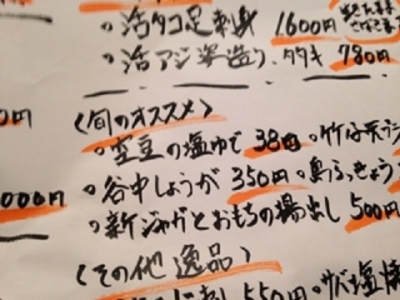 ・活タコ足刺身 1.600円
・活アジ姿造り、タタキ 780円
〈旬のオススメ〉
0円
・空豆の塩ゆで 380 ・竹の子天
・谷中しょうが 350円 ・島らっきょう
000円
・新ジャガとおもちの揚出し 500円
〈その他逸品〉
550円 ・サバ塩焼